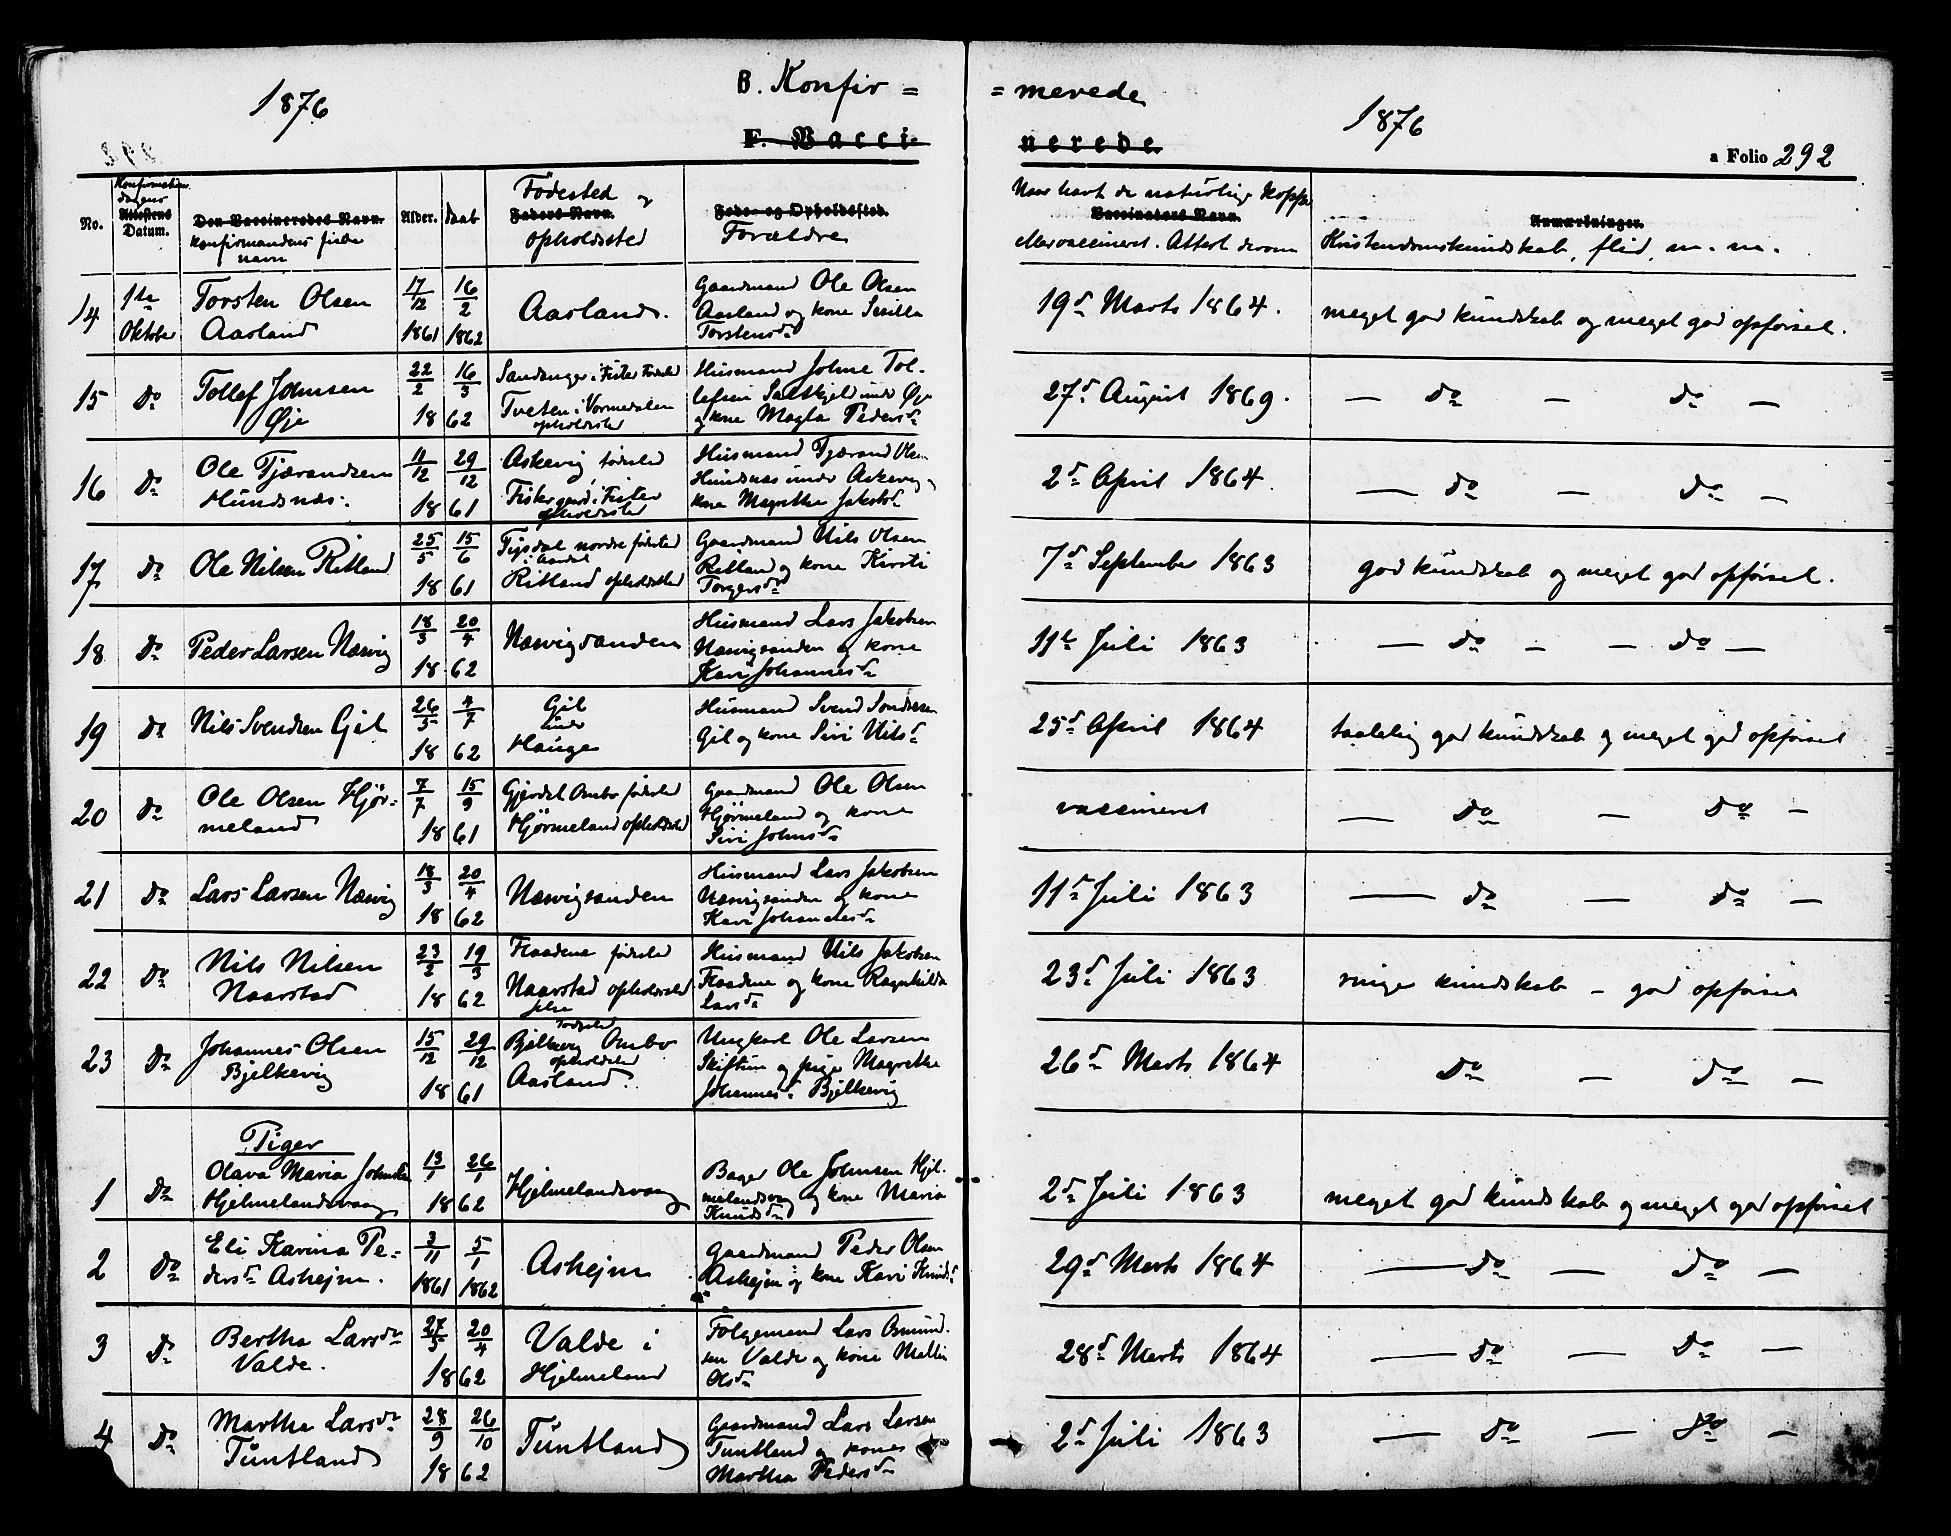 1876
B. Konfir =
= merede
1876
F. Vacci-
nerede.
a Folio 292
No.
Konfirmations
dagens
Attestens
Datum.
Den Vaccineredes Navn.
Konfirmandens fulde
navn
Alder.
Daab
Fødested og
Faders Navn.
Opholdssted
Føde- og Opholdssted.
Forældre
Naar havt de naturlige Kopper
Vaccinators Navn.
eller vaccineret. Attest derom
Anmærkninger.
Kristendomskundskab, flid, m. m.
14
1ste
Oktober
Torsten Olsen
Aarland
17/12 1861
16/2 1862
Aarland.
Gaardmand Ole Olsen
Aarland og kone Sisilla
Torstensd
19d Marts 1864.
meget god kundskab og meget god opførsel.
15
Do
Tollef Johnsen
Øje
22/2 16/3
18 62
Sandanger i Fister Fødested
Tveten i Vormedalen
opholdssted
Husmand Johne Tol-
lefsen Saltkjel under Øje
og kone Magla Pedersd
27d August 1869.
— do — do —
16
Do
Ole Tjærandsen
Hundsnæs.
11/12 29/12
18 61
Askevig fødested
Fistergaard i Fister
opholdssted
Husmand Tjærand Olsen
Hundsnæs under Askevig
kone Magrethe Jakobsd
2d April 1864
— do — do —
17
Do
Ole Nilsen Ritland
25/5 15/6
18 61
Tysdal nordre fødested
i Aardal
Ritland opholdssted
Gaardmand Nils Olsen
Ritland og kone Kirsti
Torgersd
7d September 1863
god kundskab og meget god opførsel.
18
Do
Peder Larsen Næsvig
18/3 20/4
18 62
Næsvigsanden
Husmand Lars Jakobsen
Næsvigsanden og kone
Kari Johannesd
11te Juli 1863
— do — — do —
19
Do
Nils Svendsen Gil
26/5 4/7
18 62
Gil
under
Hauge
Husmand Svend Sondresen
Gil og kone Siri Nilsd
25d April 1864
taalelig god kundskab og meget god opførsel
20
Do
Ole Olsen Hjør-
meland
7/7 15/9
18 61
Gjerdal Ombo fødested
Hjørmeland opholdssted
Gaardmand Ole Olsen
Hjørmeland og kone
Siri Johnsd
vaccineret
— do — do —
21
Do
Lars Larsen Næsvig
18/3 20/4
18 62
Næsvigsanden
Husmand Lars Jakobsen
Næsvigsanden og kone
Kari Johannesd
11d Juli 1863
— do — do —
22
Do
Nils Nilsen
Naarstad
23/2 19/3
18 62
Flaadene fødested
Naarstad opholdssted
Husmand Nils Jakobsen
Flaadene og kone Ragnhilda
Larsd
23d Juli 1863
ringe kundskab – god opførsel
23
Do
Johannes Olsen
Bjelkevig
15/12 29/12
18 61
fødested
Bjelkevig Ombo
opholdssted
Aarland.
Ungkarl Ole Larsen
Skiftun og pige Magrethe
Johannesd. Bjelkevig
26d Marts 1864
do — do —
Piger
1
Do
Olava Maria Johnsen
Hjelmelandsvaag
13/1 26/1
18 62
Hjelmelandsvaag
Bager Ole Johnsen Hjel-
melandsvaag og kone Maria
Knudsd
2d Juli 1863
meget god kundskab og meget god opførsel
2
Do
Eli Karina Pe-
dersd Ashejm.
3/11 1861
5/1 1862
Ashejm
Gaardmand Peder Olsen
Ashejm og kone Kari Knudsd
29d Marts 1864
— do — do —
3
Do
Bertha Larsd
Valde.
27/3 20/4
18 62
Valde i
Hjelmeland
Følgemand Lars Osmund-
sen Valde og kone Malli
Olsd
28d Marts 1864
— do — do —
4
Do
Martha Larsd
Tuntland
28/9 26/10
18 62
Tuntland
Gaardmand Lars Larsen
Tuntland og kone
Martha Pedersd
2d Juli 1863
— do — do —